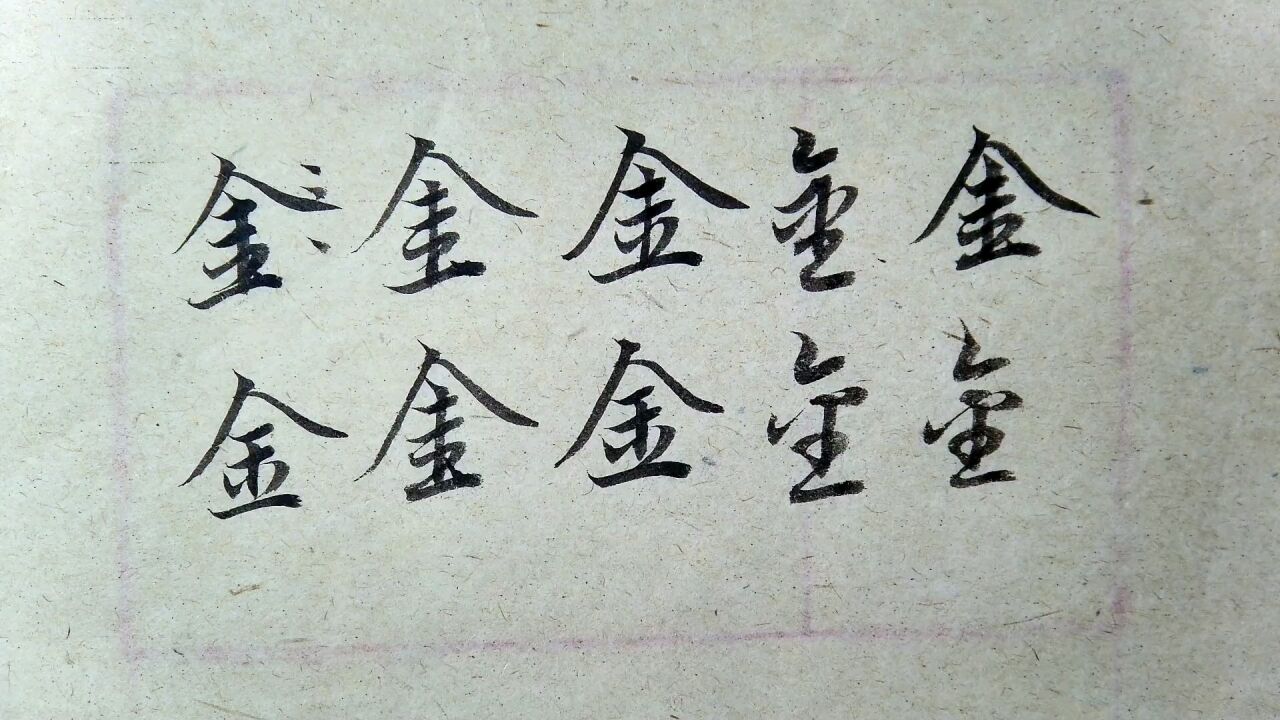 金 金 金 金 金
金 金 金 金 金